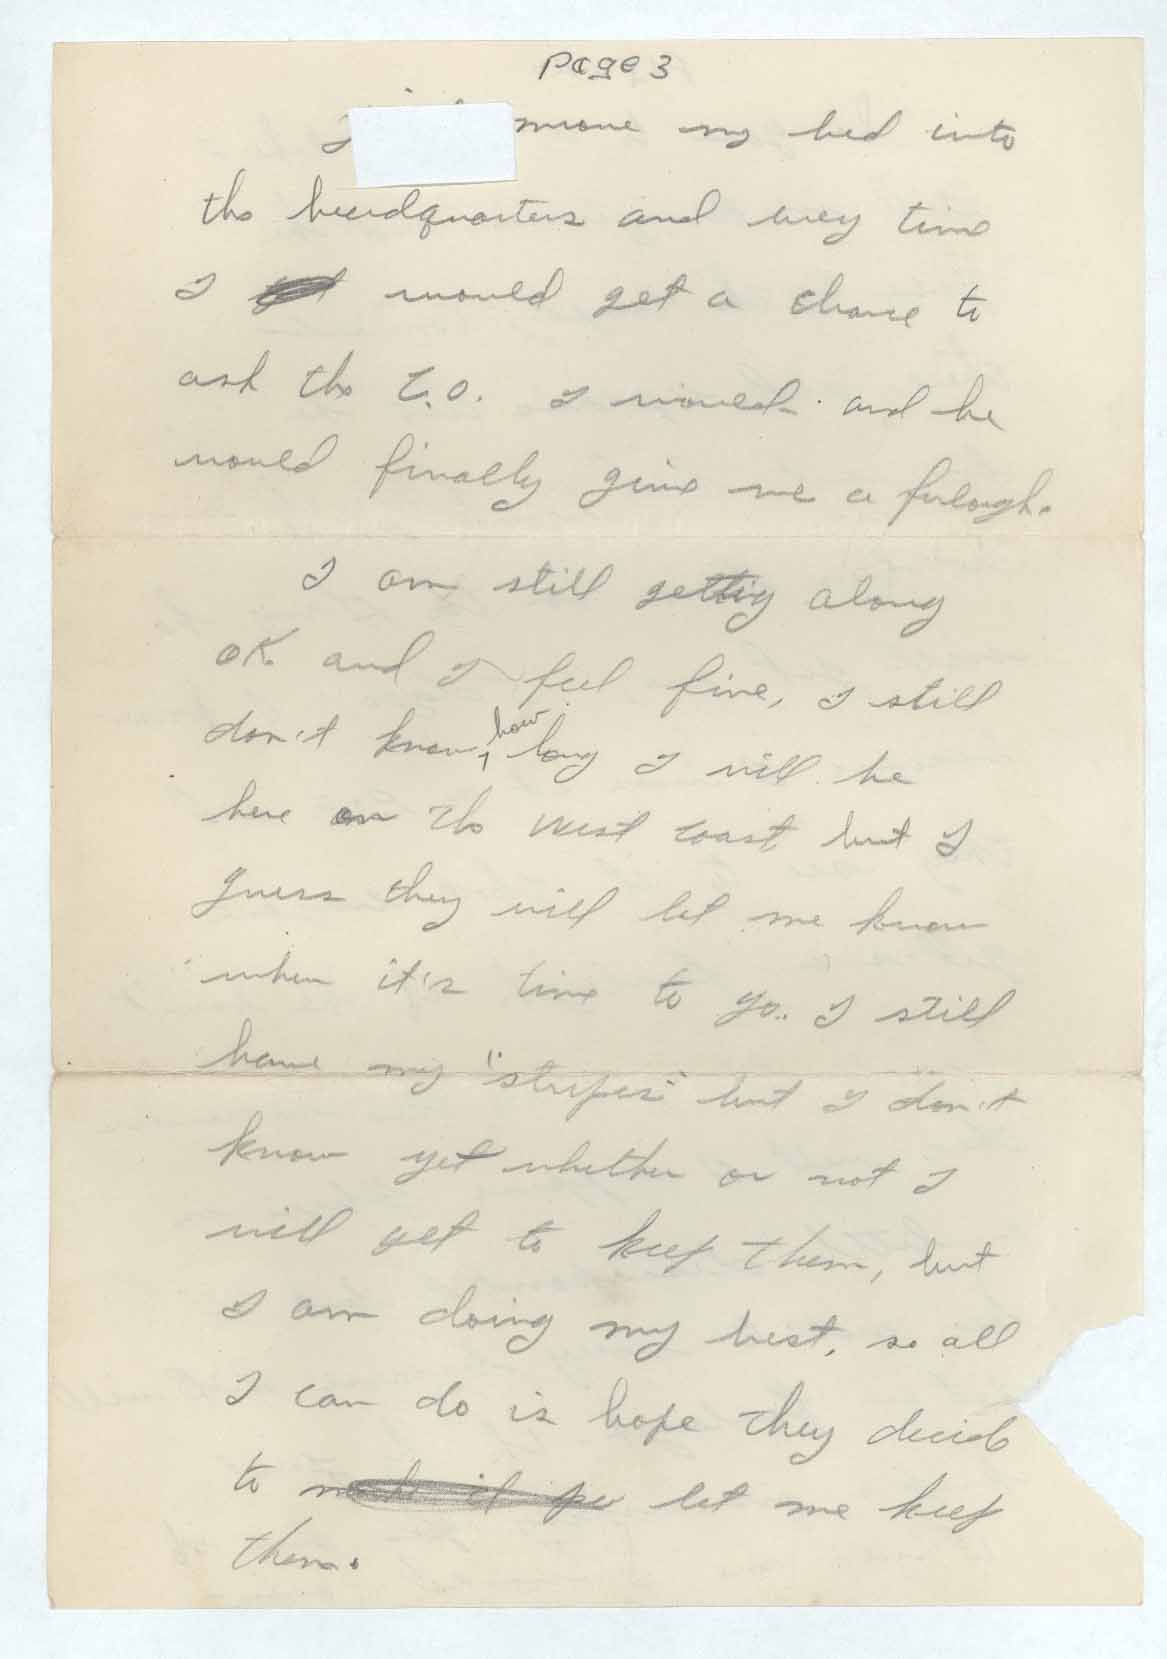 Page 3
move my bed into
the headquarters and every time
I would get a chance to
ask the C.O. I would and he
would finally give me a furlough.
I am still getting along
OK and I feel fine, I still
don't know how long I will be
here on the West Coast, but I
guess they will let me know
when it's time to go. I still
have my "stripes" but I don't
know yet whether or not I
will get to keep them, but
I am doing my best, so all
I can do is hope they decide
to make it per let me keep
them.